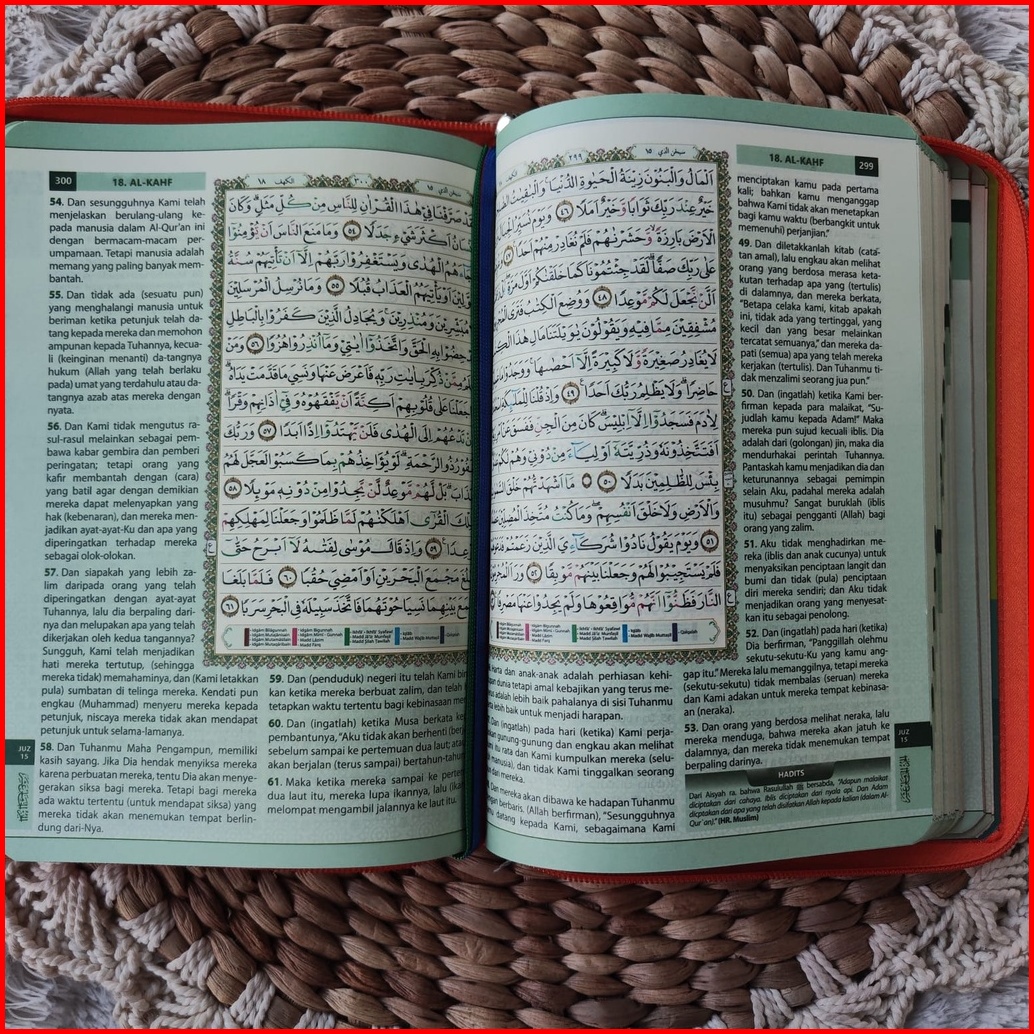 299
18. AL-KAHF
سبحن الذي ١٥
٢٩٩
اَلْمَالُ وَالْبَنُوْنَ زِيْنَةُ الْحَيٰوةِ الدُّنْيَاۚ وَالْبٰقِيٰتُ
خَيْرٌ عِنْدَ رَبِّكَ ثَوَابًا وَّخَيْرٌ اَمَلًا ٤٦ وَيَوْمَ نُسَيِّرُ
الْاَرْضَ بَارِزَةًۙ وَّحَشَرْنٰهُمْ فَلَمْ نُغَادِرْ مِنْهُمْ اَحَدًاۚ ٤٧
عَلٰى رَبِّكَ صَفًّاۗ لَقَدْ جِئْتُمُوْنَا كَمَا خَلَقْنٰكُمْ اَوَّلَ مَرَّةٍ
اَلَّنْ نَّجْعَلَ لَكُمْ مَّوْعِدًا ٤٨ وَوُضِعَ الْكِتٰبُ فَتَرَى
مُشْفِقِيْنَ مِمَّا فِيْهِ وَيَقُوْلُوْنَ يٰوَيْلَتَنَا مَالِ هٰذَا
لَا يُغَادِرُ صَغِيْرَةً وَّلَا كَبِيْرَةً اِلَّآ اَحْصٰىهَاۚ وَوَجَدُوْا
حَاضِرًاۗ وَلَا يَظْلِمُ رَبُّكَ اَحَدًا ٤٩ وَاِذْ قُلْنَا
لِاٰدَمَ فَسَجَدُوْٓا اِلَّآ اِبْلِيْسَۗ كَانَ مِنَ الْجِنِّ فَفَسَقَ
اَفَتَتَّخِذُوْنَهٗ وَذُرِّيَّتَهٗٓ اَوْلِيَاۤءَ مِنْ دُوْنِيْ وَهُمْ
بِئْسَ لِلظّٰلِمِيْنَ بَدَلًا ٥٠ مَآ اَشْهَدْتُّهُمْ خَلْقَ
وَالْاَرْضِ وَلَا خَلْقَ اَنْفُسِهِمْۖ وَمَا كُنْتُ مُتَّخِذَ الْمُضِلِّيْنَ
٥١ وَيَوْمَ يَقُوْلُ نَادُوْا شُرَكَاۤءِيَ الَّذِيْنَ زَعَمْتُمْ
فَلَمْ يَسْتَجِيْبُوْا لَهُمْ وَجَعَلْنَا بَيْنَهُمْ مَّوْبِقًا ٥٢
النَّارَ فَظَنُّوْٓا اَنَّهُمْ مُّوَاقِعُوْهَا وَلَمْ يَجِدُوْا عَنْهَا مَصْرِفًا
Harta dan anak-anak adalah perhiasan kehi-
dunia tetapi amal kebajikan yang terus me-
adalah lebih baik pahalanya di sisi Tuhanmu
lebih baik untuk menjadi harapan.
Dan (ingatlah) pada hari (ketika) Kami perja-
gunung-gunung dan engkau akan melihat
itu rata dan Kami kumpulkan mereka (selu-
manusia), dan tidak Kami tinggalkan seorang
dari mereka.
Dan mereka akan dibawa ke hadapan Tuhanmu
berbaris. (Allah berfirman), "Sesungguhnya
datang kepada Kami, sebagaimana Kami
menciptakan kamu pada pertama
kali; bahkan kamu menganggap
bahwa Kami tidak akan menetapkan
bagi kamu waktu (berbangkit untuk
memenuhi) perjanjian."
49. Dan diletakkanlah kitab (cata-
tan amal), lalu engkau akan melihat
orang yang berdosa merasa keta-
kutan terhadap apa yang (tertulis)
di dalamnya, dan mereka berkata,
"Betapa celaka kami, kitab apakah
ini, tidak ada yang tertinggal, yang
kecil dan yang besar melainkan
tercatat semuanya," dan mereka da-
pati (semua) apa yang telah mereka
kerjakan (tertulis). Dan Tuhanmu ti-
dak menzalimi seorang jua pun."
50. Dan (ingatlah) ketika Kami ber-
firman kepada para malaikat, "Su-
judlah kamu kepada Adam!" Maka
mereka pun sujud kecuali Iblis. Dia
adalah dari (golongan) jin, maka dia
mendurhakai perintah Tuhannya.
Pantaskah kamu menjadikan dia dan
keturunannya sebagai pemimpin
selain Aku, padahal mereka adalah
musuhmu? Sangat buruklah (iblis
itu) sebagai pengganti (Allah) bagi
orang yang zalim.
51. Aku tidak menghadirkan me-
reka (iblis dan anak cucunya) untuk
menyaksikan penciptaan langit dan
bumi dan tidak (pula) penciptaan
diri mereka sendiri; dan Aku tidak
menjadikan orang yang menyesat-
kan itu sebagai penolong.
52. Dan (ingatlah) pada hari (ketika)
Dia berfirman, "Panggillah olehmu
sekutu-sekutu-Ku yang kamu ang-
gap itu." Mereka lalu memanggilnya, tetapi mereka
(sekutu-sekutu) tidak membalas (seruan) mereka
dan Kami adakan untuk mereka tempat kebinasa-
an (neraka).
53. Dan orang yang berdosa melihat neraka, lalu
mereka menduga, bahwa mereka akan jatuh ke
dalamnya, dan mereka tidak menemukan tempat
berpaling darinya.
HADITS
Dari Aisyah ra. bahwa Rasulullah ﷺ bersabda, "Adapun malaikat
diciptakan dari cahaya. Iblis diciptakan dari nyala api. Dan Adam
diciptakan dari apa yang telah disifatkan Allah kepada kalian (dalam Al-
Qur'an)." (HR. Muslim)
JUZ
15
300
18. AL-KAHF
الكهف ١٨
٣٠٠
سبحن الذي ١٥
صَرَّفْنَا فِيْ هٰذَا الْقُرْاٰنِ لِلنَّاسِ مِنْ كُلِّ مَثَلٍۗ وَكَانَ
اَكْثَرَ شَيْءٍ جَدَلًا ٥٤ وَمَا مَنَعَ النَّاسَ اَنْ يُّؤْمِنُوْٓا
الْهُدٰى وَيَسْتَغْفِرُوْا رَبَّهُمْ اِلَّآ اَنْ تَأْتِيَهُمْ سُنَّةُ
اَوْ يَأْتِيَهُمُ الْعَذَابُ قُبُلًا ٥٥ وَمَا نُرْسِلُ الْمُرْسَلِيْنَ
مُبَشِّرِيْنَ وَمُنْذِرِيْنَۚ وَيُجَادِلُ الَّذِيْنَ كَفَرُوْا بِالْبَاطِلِ
بِهِ الْحَقَّ وَاتَّخَذُوْٓا اٰيٰتِيْ وَمَآ اُنْذِرُوْا هُزُوًا ٥٦ وَمَنْ
مِمَّنْ ذُكِّرَ بِاٰيٰتِ رَبِّهٖ فَاَعْرَضَ عَنْهَا وَنَسِيَ مَا قَدَّمَتْ يَدَاهُۗ
جَعَلْنَا عَلٰى قُلُوْبِهِمْ اَكِنَّةً اَنْ يَّفْقَهُوْهُ وَفِيْٓ اٰذَانِهِمْ وَقْرًاۗ
تَدْعُهُمْ اِلَى الْهُدٰى فَلَنْ يَّهْتَدُوْٓا اِذًا اَبَدًا ٥٧ وَرَبُّكَ
ذُو الرَّحْمَةِۗ لَوْ يُؤَاخِذُهُمْ بِمَا كَسَبُوْا لَعَجَّلَ لَهُمُ
بَلْ لَّهُمْ مَّوْعِدٌ لَّنْ يَّجِدُوْا مِنْ دُوْنِهٖ مَوْىِٕلًا ٥٨
الْقُرٰٓى اَهْلَكْنٰهُمْ لَمَّا ظَلَمُوْا وَجَعَلْنَا لِمَهْلِكِهِمْ
٥٩ وَاِذْ قَالَ مُوْسٰى لِفَتٰىهُ لَآ اَبْرَحُ حَتّٰٓى
مَجْمَعَ الْبَحْرَيْنِ اَوْ اَمْضِيَ حُقُبًا ٦٠ فَلَمَّا بَلَغَا
بَيْنِهِمَا نَسِيَا حُوْتَهُمَا فَاتَّخَذَ سَبِيْلَهٗ فِى الْبَحْرِ سَرَبًا ٦١
54. Dan sesungguhnya Kami telah
menjelaskan berulang-ulang ke-
pada manusia dalam Al-Qur'an ini
dengan bermacam-macam per-
umpamaan. Tetapi manusia adalah
memang yang paling banyak mem-
bantah.
55. Dan tidak ada (sesuatu pun)
yang menghalangi manusia untuk
beriman ketika petunjuk telah da-
tang kepada mereka dan memohon
ampunan kepada Tuhannya, kecua-
li (keinginan menanti) da-tangnya
hukum (Allah yang telah berlaku
pada) umat yang terdahulu atau da-
tangnya azab atas mereka dengan
nyata.
56. Dan Kami tidak mengutus ra-
sul-rasul melainkan sebagai pem-
bawa kabar gembira dan pemberi
peringatan; tetapi orang yang
kafir membantah dengan (cara)
yang batil agar dengan demikian
mereka dapat melenyapkan yang
hak (kebenaran), dan mereka men-
jadikan ayat-ayat-Ku dan apa yang
diperingatkan terhadap mereka
sebagai olok-olokan.
57. Dan siapakah yang lebih za-
lim daripada orang yang telah
diperingatkan dengan ayat-ayat
Tuhannya, lalu dia berpaling dari-
nya dan melupakan apa yang telah
dikerjakan oleh kedua tangannya?
Sungguh, Kami telah menjadikan
hati mereka tertutup, (sehingga
mereka tidak) memahaminya, dan (Kami letakkan
pula) sumbatan di telinga mereka. Kendati pun
engkau (Muhammad) menyeru mereka kepada
petunjuk, niscaya mereka tidak akan mendapat
petunjuk untuk selama-lamanya.
58. Dan Tuhanmu Maha Pengampun, memiliki
kasih sayang. Jika Dia hendak menyiksa mereka
karena perbuatan mereka, tentu Dia akan menye-
gerakan siksa bagi mereka. Tetapi bagi mereka
ada waktu tertentu (untuk mendapat siksa) yang
mereka tidak akan menemukan tempat berlin-
dung dari-Nya.
59. Dan (penduduk) negeri itu telah Kami
kan ketika mereka berbuat zalim, dan telah
tetapkan waktu tertentu bagi kebinasaan
60. Dan (ingatlah) ketika Musa berkata
pembantunya, "Aku tidak akan berhenti
sebelum sampai ke pertemuan dua laut;
akan berjalan (terus sampai) bertahun-tahun
61. Maka ketika mereka sampai ke
dua laut itu, mereka lupa ikannya, lalu
melompat mengambil jalannya ke laut itu.
JUZ
15